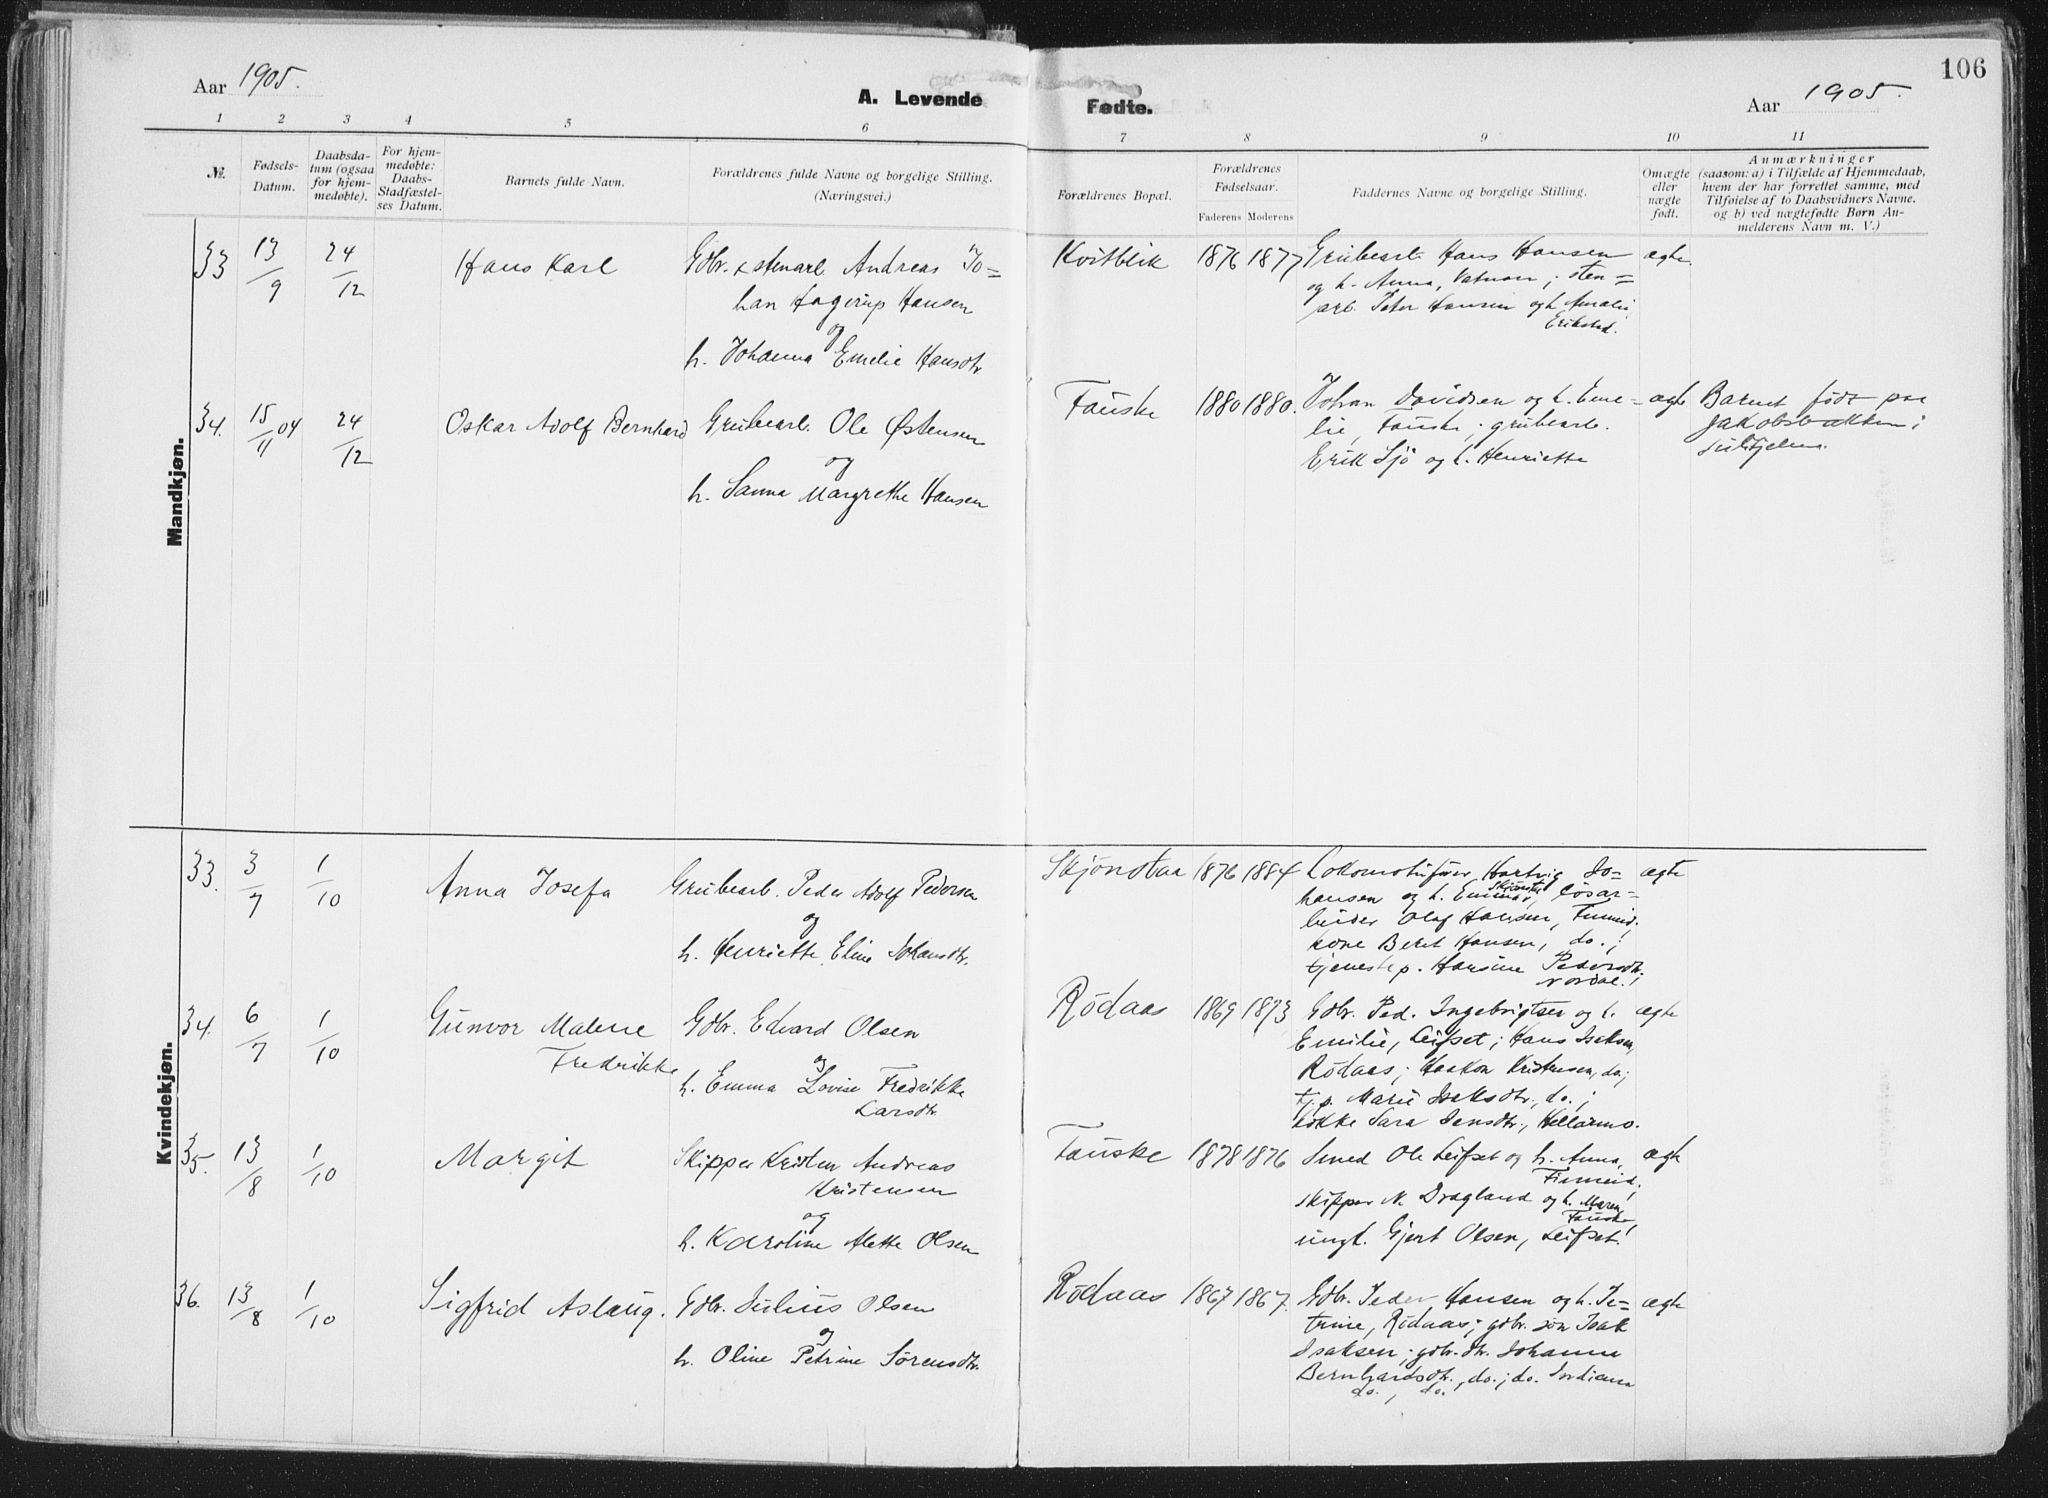 Aar 1905.
A. Levende Fødte.
Aar 1905.
106
1 2 3 4 5 6 7 8 9 10 11
№.
Fødsels-
Datum.
Daabsda-
tum (ogsaa
for hjem-
medøbte).
For hjem-
medøbte:
Daabs-
Stadfæstel-
ses Datum.
Barnets fulde Navn.
Forældrenes fulde Navne og borgelige Stilling.
(Næringsvei.)
Forældrenes Bopæl.
Forældrenes
Fødselsaar.
Faderens Moderens
Faddernes Navne og borgelige Stilling.
Omægte
eller
nægte
født.
Anmærkninger
(saasom: a) i Tilfælde af Hjemmedaab,
hvem der har forrettet samme, med
Tilføielse af to Daabsvidners Navne.
og b) ved nægtefødte Børn An-
melderens Navn m. V.)
Mandkjøn.
33 13/9 24/12
Hans Karl
Gdbr. & stenarb. Andreas Jo=
han Hagerup Hansen
og
h. Johanna Emelie Hansdtr
Kvitblik
1876 1877
Grubearb. Hans Hansen
og h. Anna, Vatnan; sten=
arb. Peter Hansen og h. Amalie
Erikstad.
ægte
34. 15/11 04 24/12
Oskar Adolf Bernhard
Grubearb. Ole Østensen
og
h. Sanna Margrethe Hansen
Fauske
1880 1880.
Johan Davidsen og h. Eme=
lie, Fauske; grubearb.
Erik Sjö og h. Henriette
ægte
Barnet født paa
Jakobsbakken i
Sulitjelma.
Kvindekjøn.
33. 3/7 1/10
Anna Josefa
Grubearb. Peder Adolf Pedersen
og
h. Henriette Eline Johansdtr.
Skjönstaa
1876 1884
Lokomotivfører Hartvig Jo=
hansen og h. Emma, Skjönstaa, lösar=
beider Olaf Hansen, Finneid.
kone Beret Hansen, do.;
tjenestep. Hansine Pedersdtr.
Nordal.;
ægte
34. 6/7 1/10
Gunvor Malene
Fredrikke
Gdbr. Edvard Olsen
og
h. Emma Lovise Fredrikke
Larsdtr.
Rödaas
1869 1873
Gdbr. Ped. Ingebrigtsen og h.
Emilie, Leifset; Hans Isaksen,
Rödaas; Haakon Kristensen, do.;
tj.p. Marie Isaksdtr., do.;
kokke Sara Jensdtr., Hellarmo.
ægte
35. 13/8 1/10
Margit
Skipper Kristen Andreas
Kristensen
og
h. Karoline Alette Olsen
Fauske
1878 1876
Smed Ole Leifset og h. Anna,
Finneid;
skipper N. Dragland og h. Maren,
Fauske;
ungk. Gjert Olsen, Leifset.
ægte
36. 13/8 1/10
Sigfrid Aslaug.
Gdbr. Julius Olsen
og
h. Oline Petrine Sørensdtr.
Rödaas
1867 1867.
Gdbr. Peder Hansen og h. Pe=
trine, Rödaas; gdbr. søn Isak
Isaksen; gdbr. dtr. Johanna
Bernhardsdtr., do.; do. Jordiana
do., do.
ægte